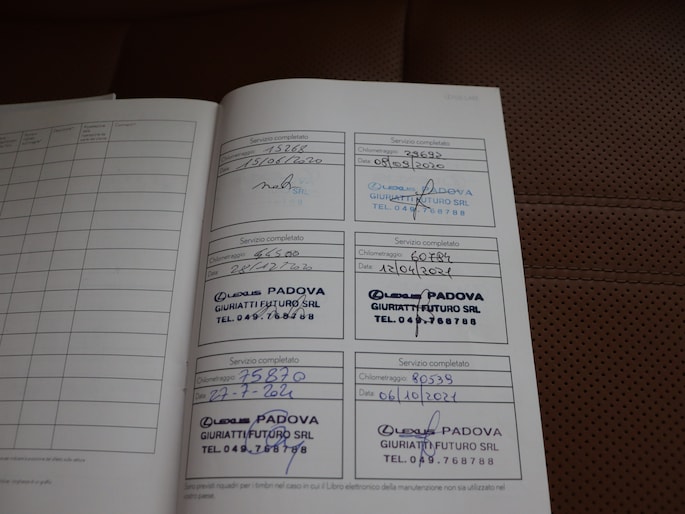 Servizio completato
Chilometraggio: 15268
Data: 15/06/2020
SRL
Servizio completato
Chilometraggio: 29692
Data: 08/09/2020
LEXUS PADOVA
GIURIATTI FUTURO SRL
TEL. 049.768788
Servizio completato
Chilometraggio:
Data: 28/12/2020
LEXUS PADOVA
GIURIATTI FUTURO SRL
TEL. 049.768788
Servizio completato
Chilometraggio: 60784
Data: 12/04/2021
LEXUS PADOVA
GIURIATTI FUTURO SRL
TEL. 049.768788
Servizio completato
Chilometraggio: 75870
Data: 27-7-2021
LEXUS PADOVA
GIURIATTI FUTURO SRL
TEL. 049.768788
Servizio completato
Chilometraggio: 80539
Data: 06/10/2021
LEXUS PADOVA
GIURIATTI FUTURO SRL
TEL. 049.768788
Sono previsti riquadri per i timbri nel caso in cui il Libro elettronico della manutenzione non sia utilizzato nel
vostro paese.